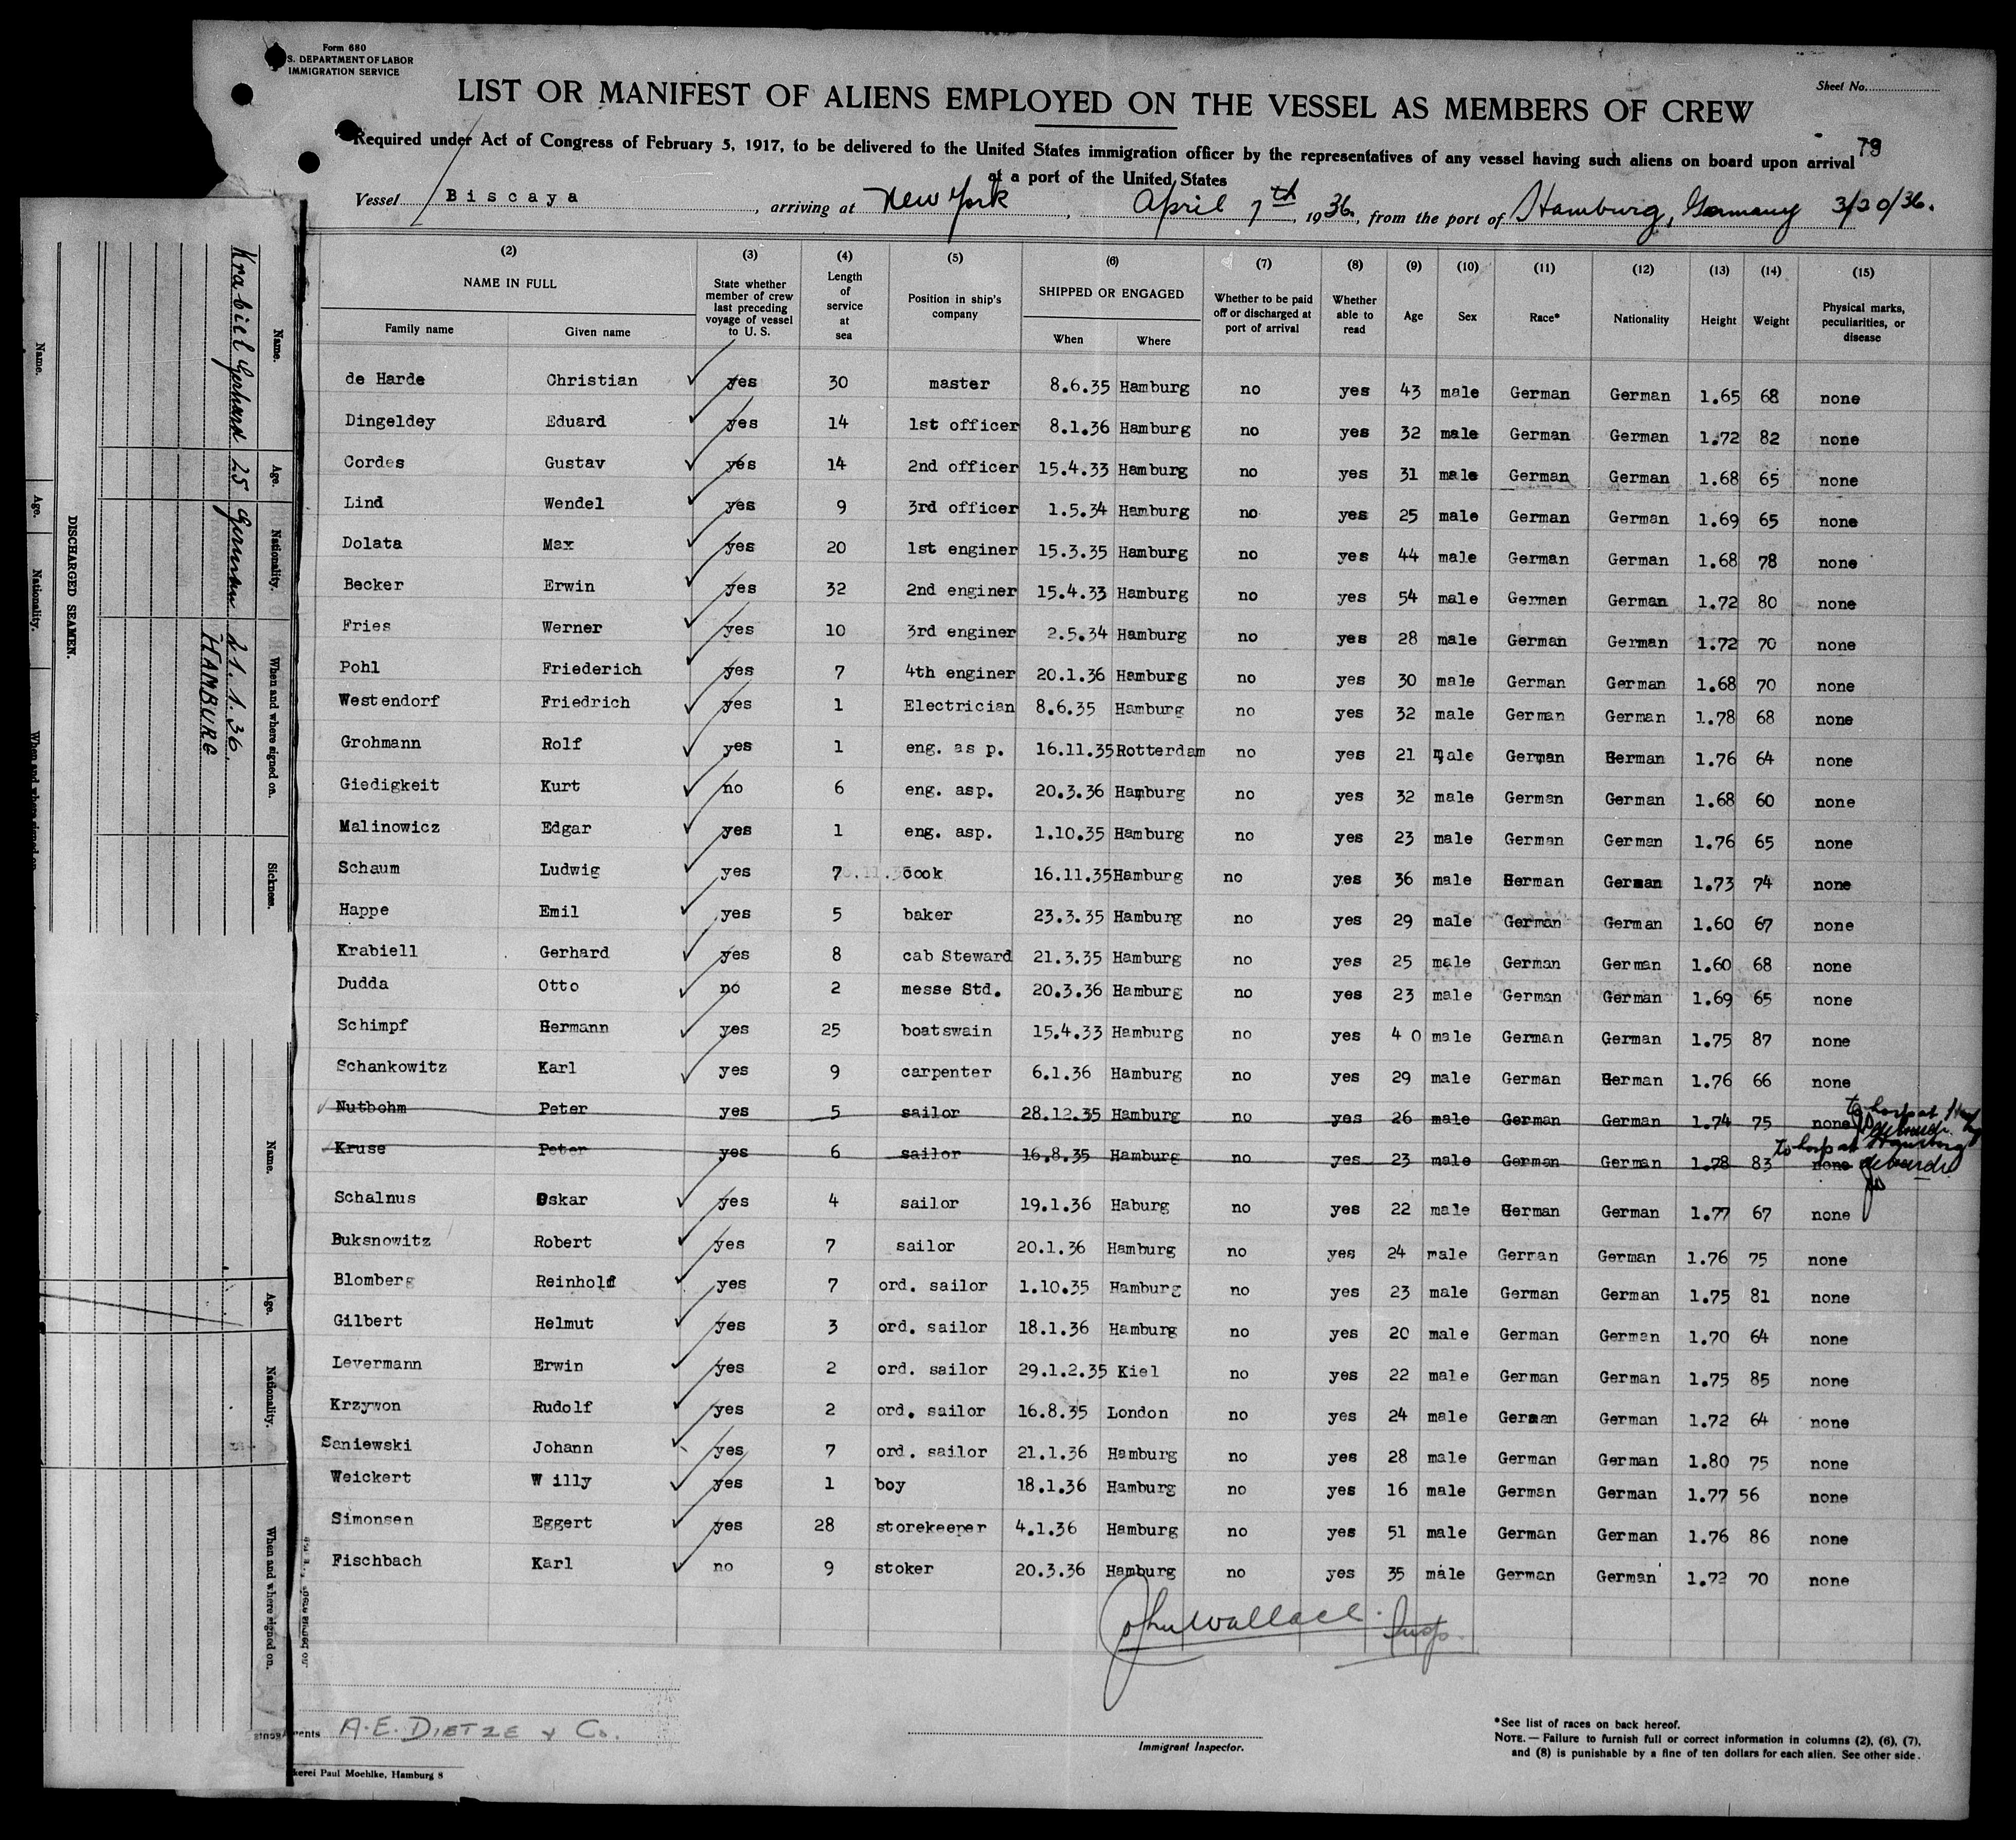 Form 680
S. DEPARTMENT OF LABOR
IMMIGRATION SERVICE
Sheet No.
LIST OR MANIFEST OF ALIENS EMPLOYED ON THE VESSEL AS MEMBERS OF CREW
Required under Act of Congress of February 5, 1917, to be delivered to the United States immigration officer by the representatives of any vessel having such aliens on board upon arrival
79
at a port of the United States
Vessel Biscaya, arriving at New York, April 7th, 1936, from the port of Hamburg, Germany 3/20/36.
(2) (3) (4) (5) (6) (7) (8) (9) (10) (11) (12) (13) (14) (15)
NAME IN FULL State whether member of crew last preceding voyage of vessel to U. S. Length of service at sea Position in ship's company SHIPPED OR ENGAGED Whether to be paid off or discharged at port of arrival Whether able to read Age Sex Race* Nationality Height Weight Physical marks, peculiarities, or disease
Family name Given name When Where
de Harde Christian yes 30 master 8.6.35 Hamburg no yes 43 male German German 1.65 68 none
Dingeldey Eduard yes 14 1st officer 8.1.36 Hamburg no yes 32 male German German 1.72 82 none
Cordes Gustav yes 14 2nd officer 15.4.33 Hamburg no yes 31 male German German 1.68 65 none
Lind Wendel yes 9 3rd officer 1.5.34 Hamburg no yes 25 male German German 1.69 65 none
Dolata Max yes 20 1st enginer 15.3.35 Hamburg no yes 44 male German German 1.68 78 none
Becker Erwin yes 32 2nd enginer 15.4.33 Hamburg no yes 54 male German German 1.72 80 none
Fries Werner yes 10 3rd enginer 2.5.34 Hamburg no yes 28 male German German 1.72 70 none
Pohl Friederich yes 7 4th enginer 20.1.36 Hamburg no yes 30 male German German 1.68 70 none
Westendorf Friedrich yes 1 Electrician 8.6.35 Hamburg no yes 32 male German German 1.78 68 none
Grohmann Rolf yes 1 eng. as p. 16.11.35 Rotterdam no yes 21 male German German 1.76 64 none
Giedigkeit Kurt no 6 eng. asp. 20.3.36 Hamburg no yes 32 male German German 1.68 60 none
Malinowicz Edgar yes 1 eng. asp. 1.10.35 Hamburg no yes 23 male German German 1.76 65 none
Schaum Ludwig yes 7 cook 16.11.35 Hamburg no yes 36 male German German 1.73 74 none
Happe Emil yes 5 baker 23.3.35 Hamburg no yes 29 male German German 1.60 67 none
Krabiell Gerhard yes 8 cab Steward 21.3.35 Hamburg no yes 25 male German German 1.60 68 none
Dudda Otto no 2 messe Std. 20.3.36 Hamburg no yes 23 male German German 1.69 65 none
Schimpf Hermann yes 25 boatswain 15.4.33 Hamburg no yes 4 0 male German German 1.75 87 none
Schankowitz Karl yes 9 carpenter 6.1.36 Hamburg no yes 29 male German German 1.76 66 none
Nutbohm Peter yes 5 sailor 28.12.35 Hamburg no yes 26 male German German 1.74 75 none to hosp at
Kruse Peter yes 6 sailor 16.8.35 Hamburg no yes 23 male German German 1.78 83 none to hosp at Hamburg
Schalnus Oskar yes 4 sailor 19.1.36 Haburg no yes 22 male German German 1.77 67 none
Buksnowitz Robert yes 7 sailor 20.1.36 Hamburg no yes 24 male German German 1.76 75 none
Blomberg Reinhold yes 7 ord. sailor 1.10.35 Hamburg no yes 23 male German German 1.75 81 none
Gilbert Helmut yes 3 ord. sailor 18.1.36 Hamburg no yes 20 male German German 1.70 64 none
Levermann Erwin yes 2 ord. sailor 29.1.2.35 Kiel no yes 22 male German German 1.75 85 none
Krzywon Rudolf yes 2 ord. sailor 16.8.35 London no yes 24 male German German 1.72 64 none
Saniewski Johann yes 7 ord. sailor 21.1.36 Hamburg no yes 28 male German German 1.80 75 none
Weickert W illy yes 1 boy 18.1.36 Hamburg no yes 16 male German German 1.77 56 none
Simonsen Eggert yes 28 storekeeper 4.1.36 Hamburg no yes 51 male German German 1.76 86 none
Fischbach Karl no 9 stoker 20.3.36 Hamburg no yes 35 male German German 1.72 70 none
John Wallace Insp.
A. E. DIETZE & Co.
Immigrant Inspector.
*See list of races on back hereof.
NOTE.— Failure to furnish full or correct information in columns (2), (6), (7),
and (8) is punishable by a fine of ten dollars for each alien. See other side.
kerei Paul Moehlke, Hamburg 8
DISCHARGED SEAMEN.
Name. Age. Nationality. When and where signed on. Sickness.
Krabiel Gerhard 25 German 21.1.36.
HAMBURG
Name. Age. Nationality. When and where signed on.
Name. Age. Nationality. When and where signed on.